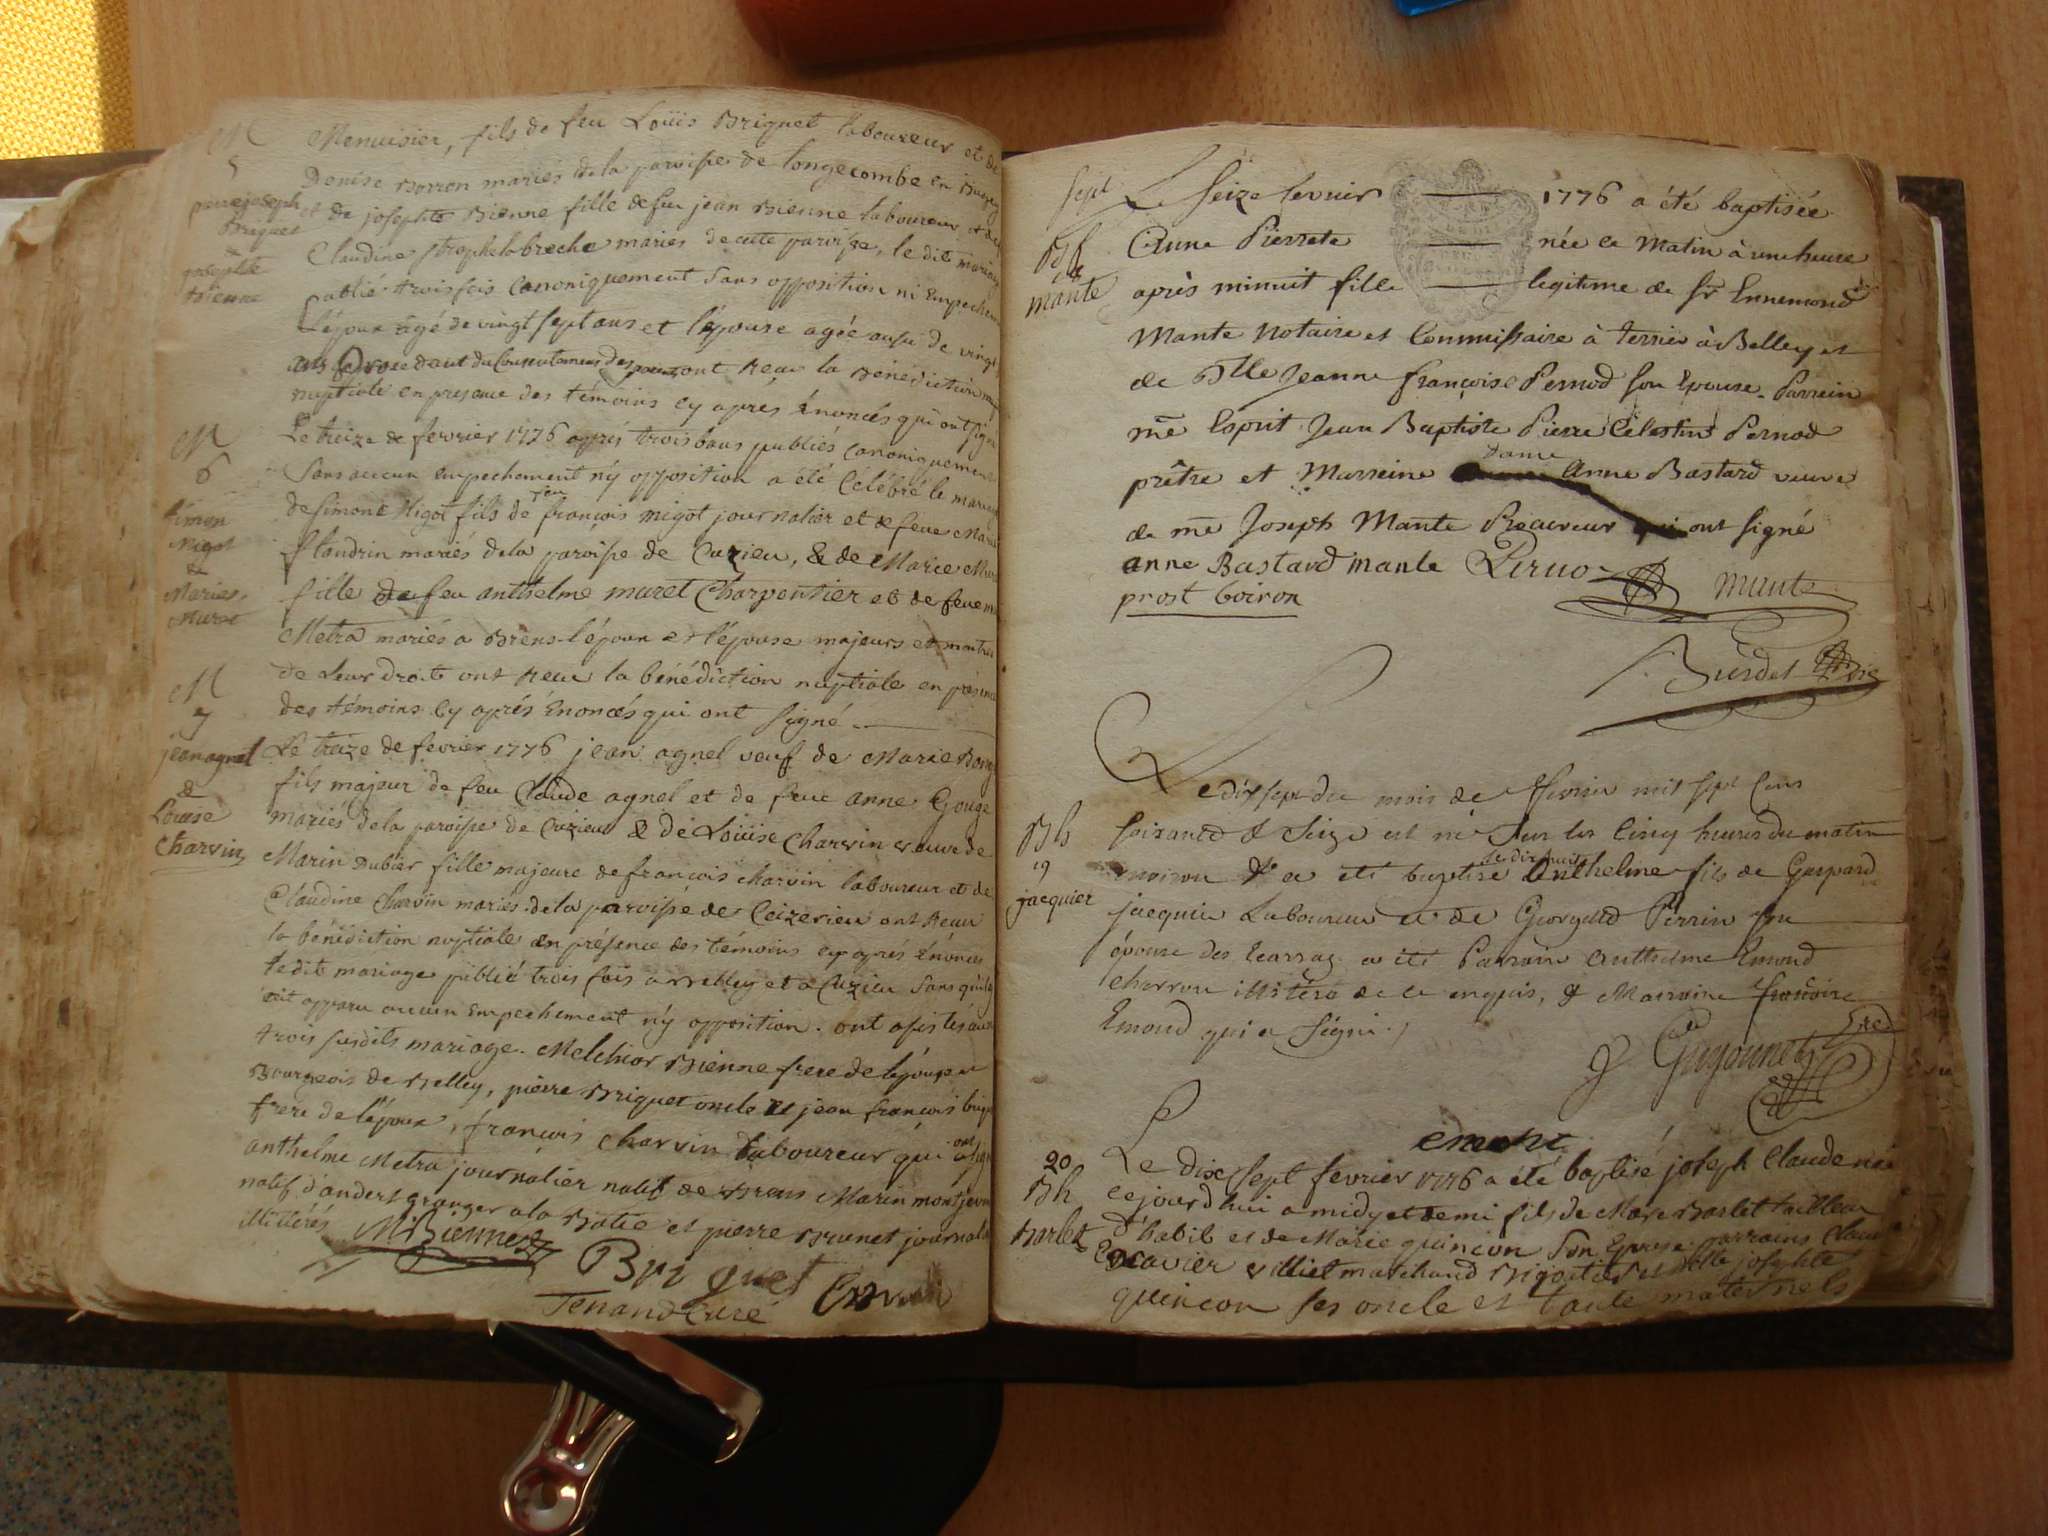 M
5
pierre joseph
Briquet
&
josephte
Bienne
Menuisier, fils de feu Loüis Briquet laboureur et de
Denise Borron mariés de la paroisse de longecombe en Bugey
et de josephte Bienne fille de feu jean Bienne laboureur et de
Claudine mariés de cette paroisse, le dit mariage
publié trois fois Canoniquement sans opposition ni Empechement
L'époux âgé de vingt sept ans et l'épouse agée aussi de vingt
ans du Consentement des ont Reçu la Bénédiction
nuptiale en presence des témoins cy apres Énoncés qui ont signé
M
6
simon
Migot
&
Marie
Muret
Le treize de fevrier 1776 après trois bans publiés Canoniquement
Sans aucun empechement n'y opposition a été Célébré le mariage
de simond Migot fils de feu françois migot journalier et de feue Marie
flandrin mariés de la paroisse de Cuzieu, & de Marie
fille de feu anthelme muret Charpentier et de feue
Metra mariés a Brens l'époux et l'épouse majeurs et maitres
de Leur droits ont Reçu la bénédiction nuptiale en présence
des témoins cy après Énoncés qui ont signé
M
7
jean agnel
&
Louise
Charvin
Le treize de fevrier 1776 jean agnel veuf de Marie
fils majeur de feu Claude agnel et de feue anne Gouge
mariés de la paroisse de Cuzieu & de Loüise Charvin veuve de
Marin Dubier fille majeure de françois charvin laboureur et de
Claudine Charvin mariés de la paroisse de Ceizerieu ont Reçu
la bénédiction nuptiale en présence des témoins cy après Énoncés
le dit mariage publié trois fois a Belley et a Cuzieu sans qu'il y
ait apparu aucun Empechement n'y opposition. ont assistés aux
trois susdits mariage. Melchior Bienne frere de l'épouse
Bourgeois de Belley, pierre Briquet oncle et jean françois
frere de l'époux, françois Charvin Laboureur qui ont signé
anthelme Metra journalier natif de Brens Marin
natif d'andert granger a la Batie et pierre Brunet journalier
illiterés
MBienne
Briquet
Charvin
Tenand Curé
sept
Bh
18
mante
Le seize fevrier 1776 a été baptisée
Anne Pierrete née ce matin à une heure
après minuit fille legitime de Sr Ennemond
Mante Notaire et Commissaire à terrier à Belley et
de Dlle Jeanne françoise Pernod son Epouse. Parrein
me Esprit Jean Baptiste Pierre Célestin Pernod
prêtre et Marreine dame Anne Bastard veuve
de me Joseph Mante Procureur qui ont signé
anne Bastard mante
mante
prost boiron
Burdet
Bh
19
jacquier
Le dix sept du mois de fevrier mil sept Cens
soixante & seize est né sur les cinq heures du matin
environ & a eté baptisé le dix huit Anthelme fils de Gaspard
jacquier Laboureur et de Georgette Perrin son
épouse des Ecassaz a eté Parrain Anthelme Emond
charron illitéré de ce enquis, & Marraine françoise
Emond qui a signé.
emont
20
Bh
Barlet
Le dix sept fevrier 1776 a été baptisé joseph Claude né
ce jourd'hui a midy et demi fils de Marc Barlet tailleur
d'habit et de Marie quincon son Epouse. parrains Claude
Xavier villiet marchand et Dlle josephte
quincon ses oncle et tante maternels